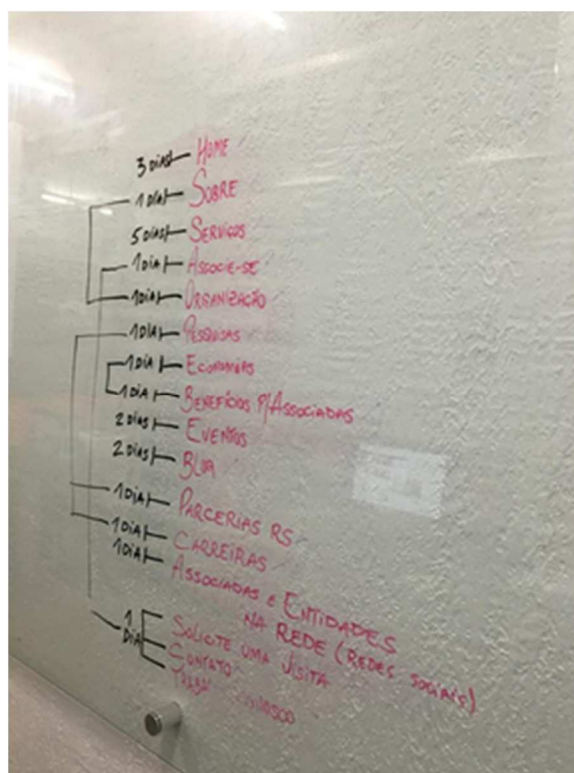 3 DIAS HOME
1 DIA SOBRE
5 DIAS SERVIÇOS
1 DIA ASSOCIE-SE
1 DIA ORGANIZAÇÃO
1 DIA PESQUISAS
1 DIA ECONOMIAS
1 DIA BENEFÍCIOS P/ASSOCIADAS
2 DIAS EVENTOS
2 DIAS
1 DIA PARCERIAS RS
1 DIA CARREIRAS
1 DIA ASSOCIADAS E ENTIDADES
NA REDE (REDES SOCIAIS)
1 DIA
SOLICITE UMA VISITA
CONTATO